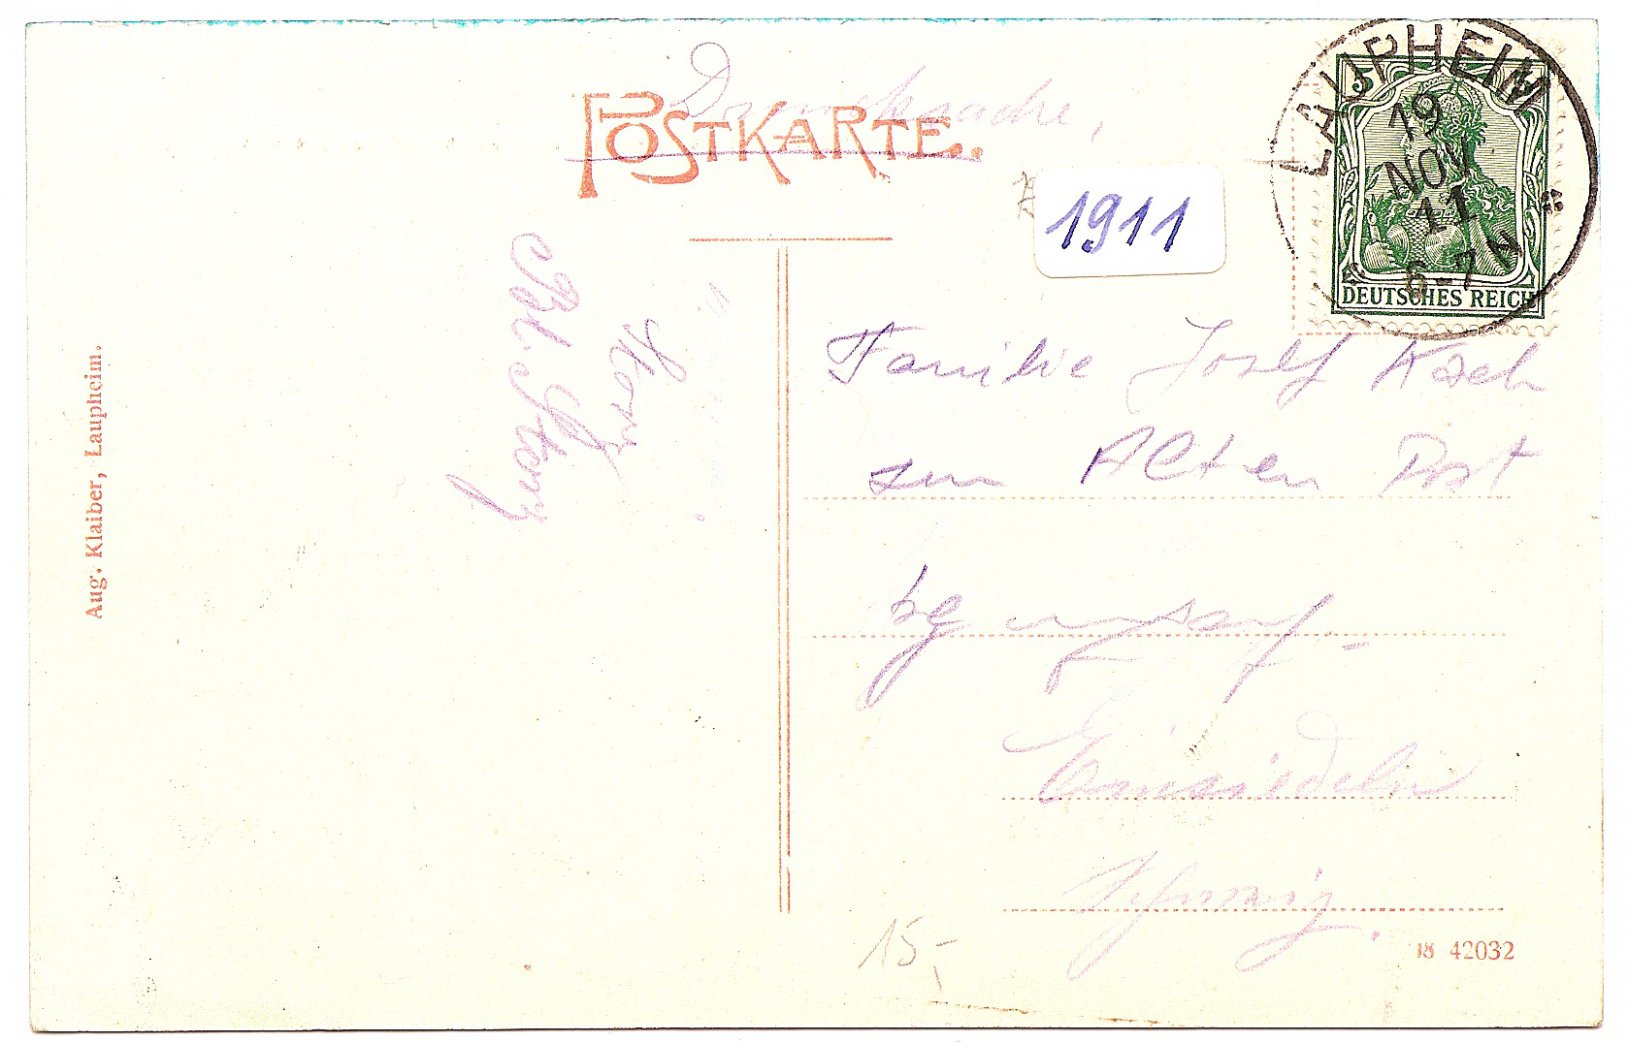 Drucksache,
POSTKARTE.
LAUPHEIM
19
NOV
11
6-7 N
5
DEUTSCHES REICH
1911
Aug. Klaiber, Laupheim.
Familie Josef
zur Alten Post
Einsiedeln
Schweiz.
15,-
18 42032